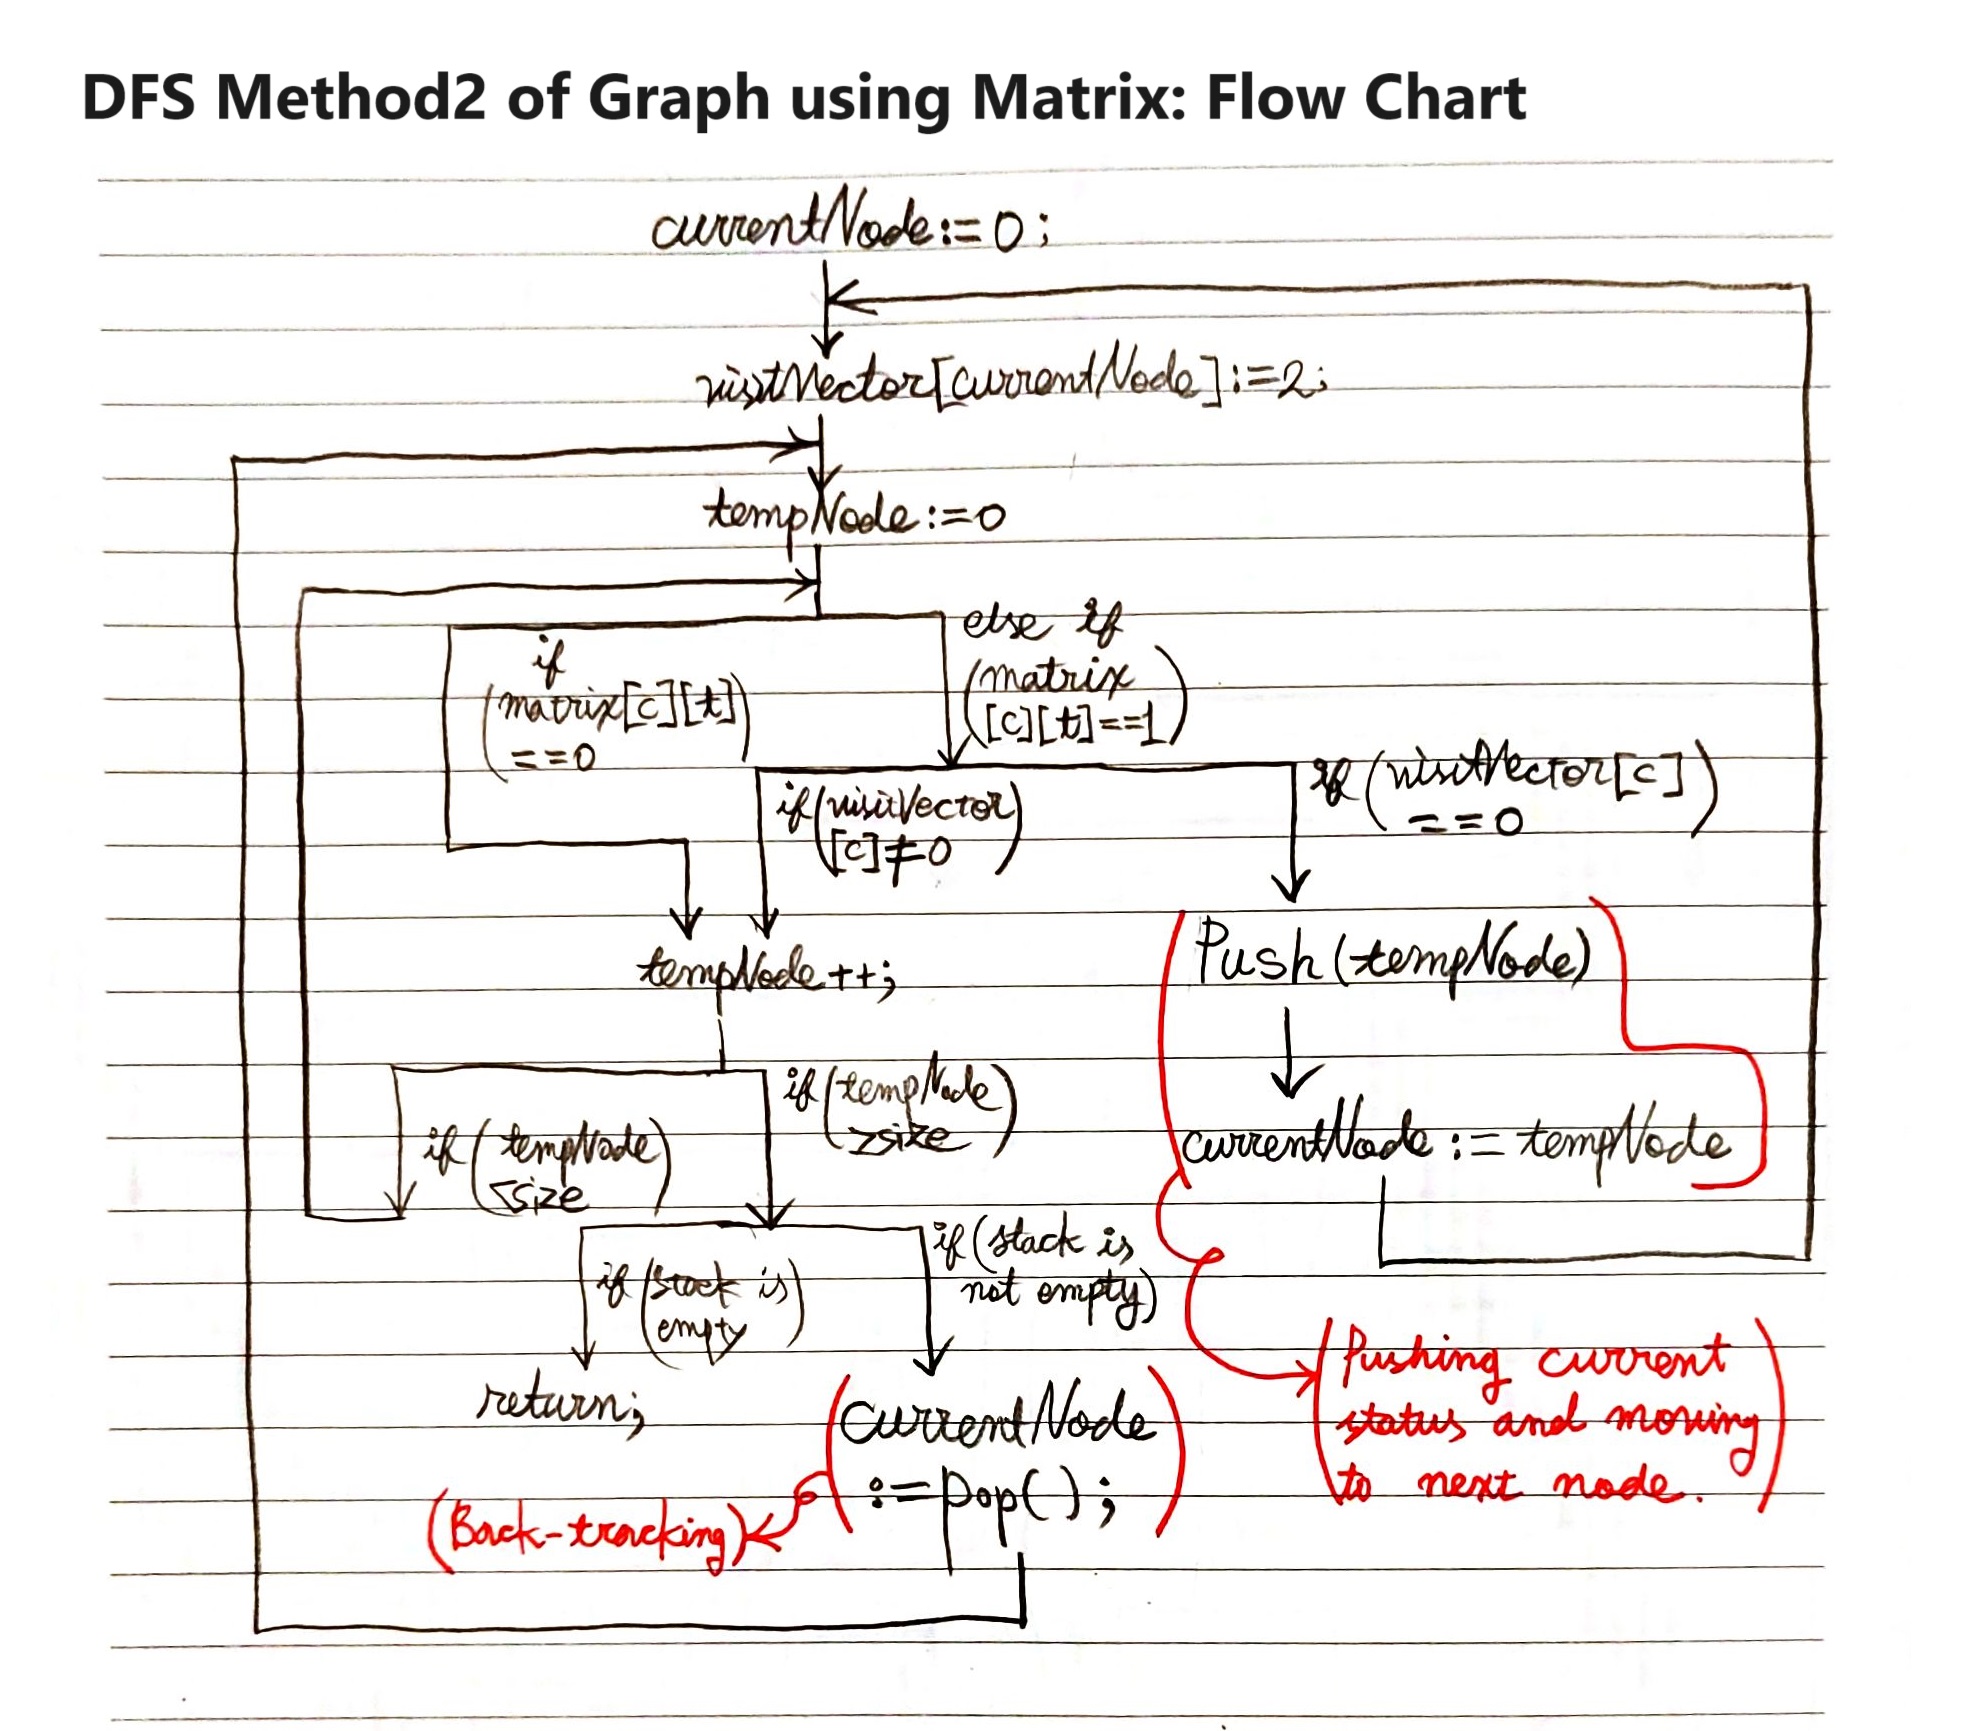 DFS Method2 of Graph using Matrix: Flow Chart
currentNode:=0;
visitVector[currentNode]:=2;
tempNode:=0
if
(matrix[c][t]
==0)
else if
(matrix
[c][t]==1)
if(visitVector
[c]≠0)
if(visitVector[c]
==0)
tempNode++;
Push(tempNode)
currentNode:=tempNode
if(tempNode
<size)
if(tempNode
>size)
if(stack is
empty)
if(stack is
not empty)
return;
(currentNode
:=pop();)
(Back-tracking)
(Pushing current
status and moving
to next node.)